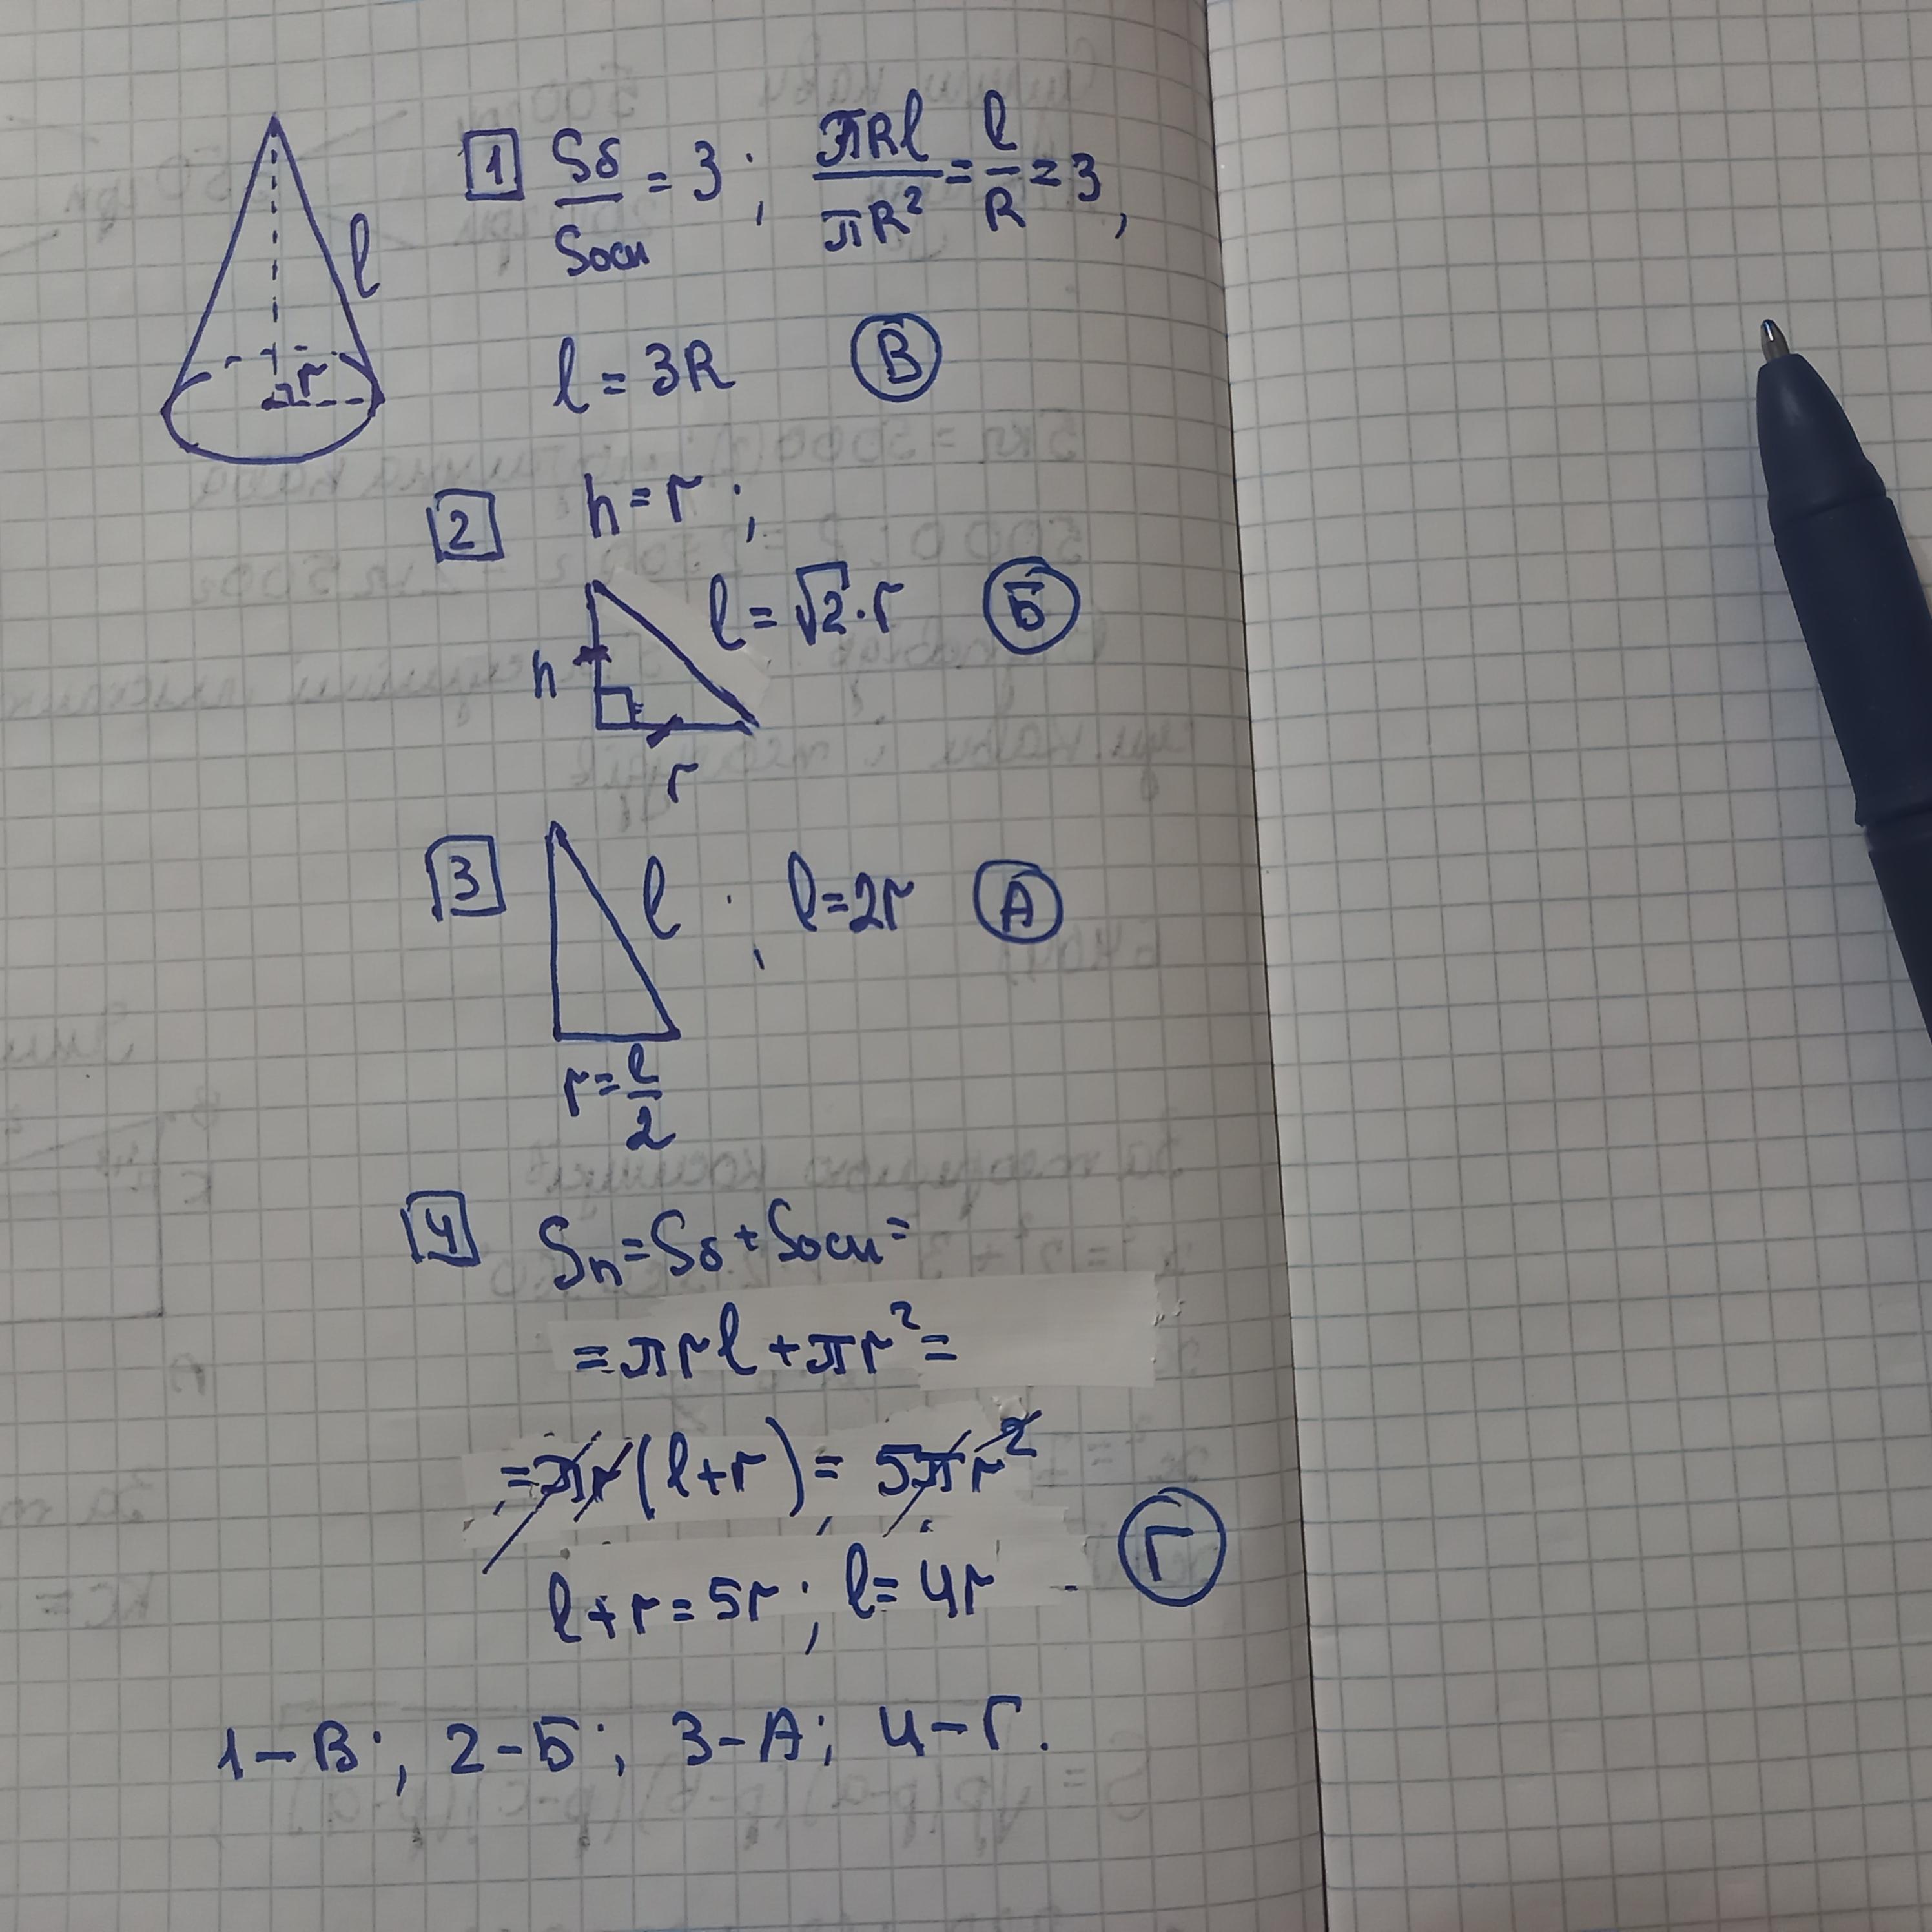 l
r
1 Sб/Sосн = 3; πRl/πR² = l/R = 3,
l = 3R В
2 h = r;
l = √2·r Б
h
r
3 l ; l=2r А
r = l/2
4 Sп = Sб + Sосн =
= πrl + πr² =
= πr(l+r) = 5πr²,
l+r=5r; l=4r Г
1-В; 2-Б; 3-А; 4-Г.